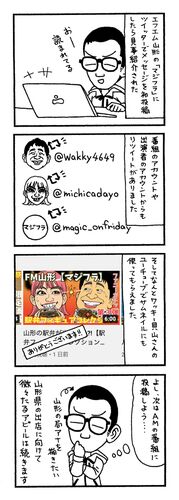 エフエム山形の「マジフラ」に
ツイッターでメッセージを初投稿
したら見事紹介された
おー
読まれてる
番組のアカウントや
出演者のアカウントからも
リツイートがありました
@Wakky4649
@michicadayo
マジフラ
@magic_onfriday
そしてなんとワッキー貝山さんの
ユーチューブでサムネイルにも
使ってもらえました
FM山形【マジフラ】
6:00
山形の駅弁が
【駅
ありがとうございます!!
・1日前
よし、次はAMの番組に
投稿しよう…
山形の名ヅケを
描きたい
山形県の出店に向けて
微々たるアピールは続きます